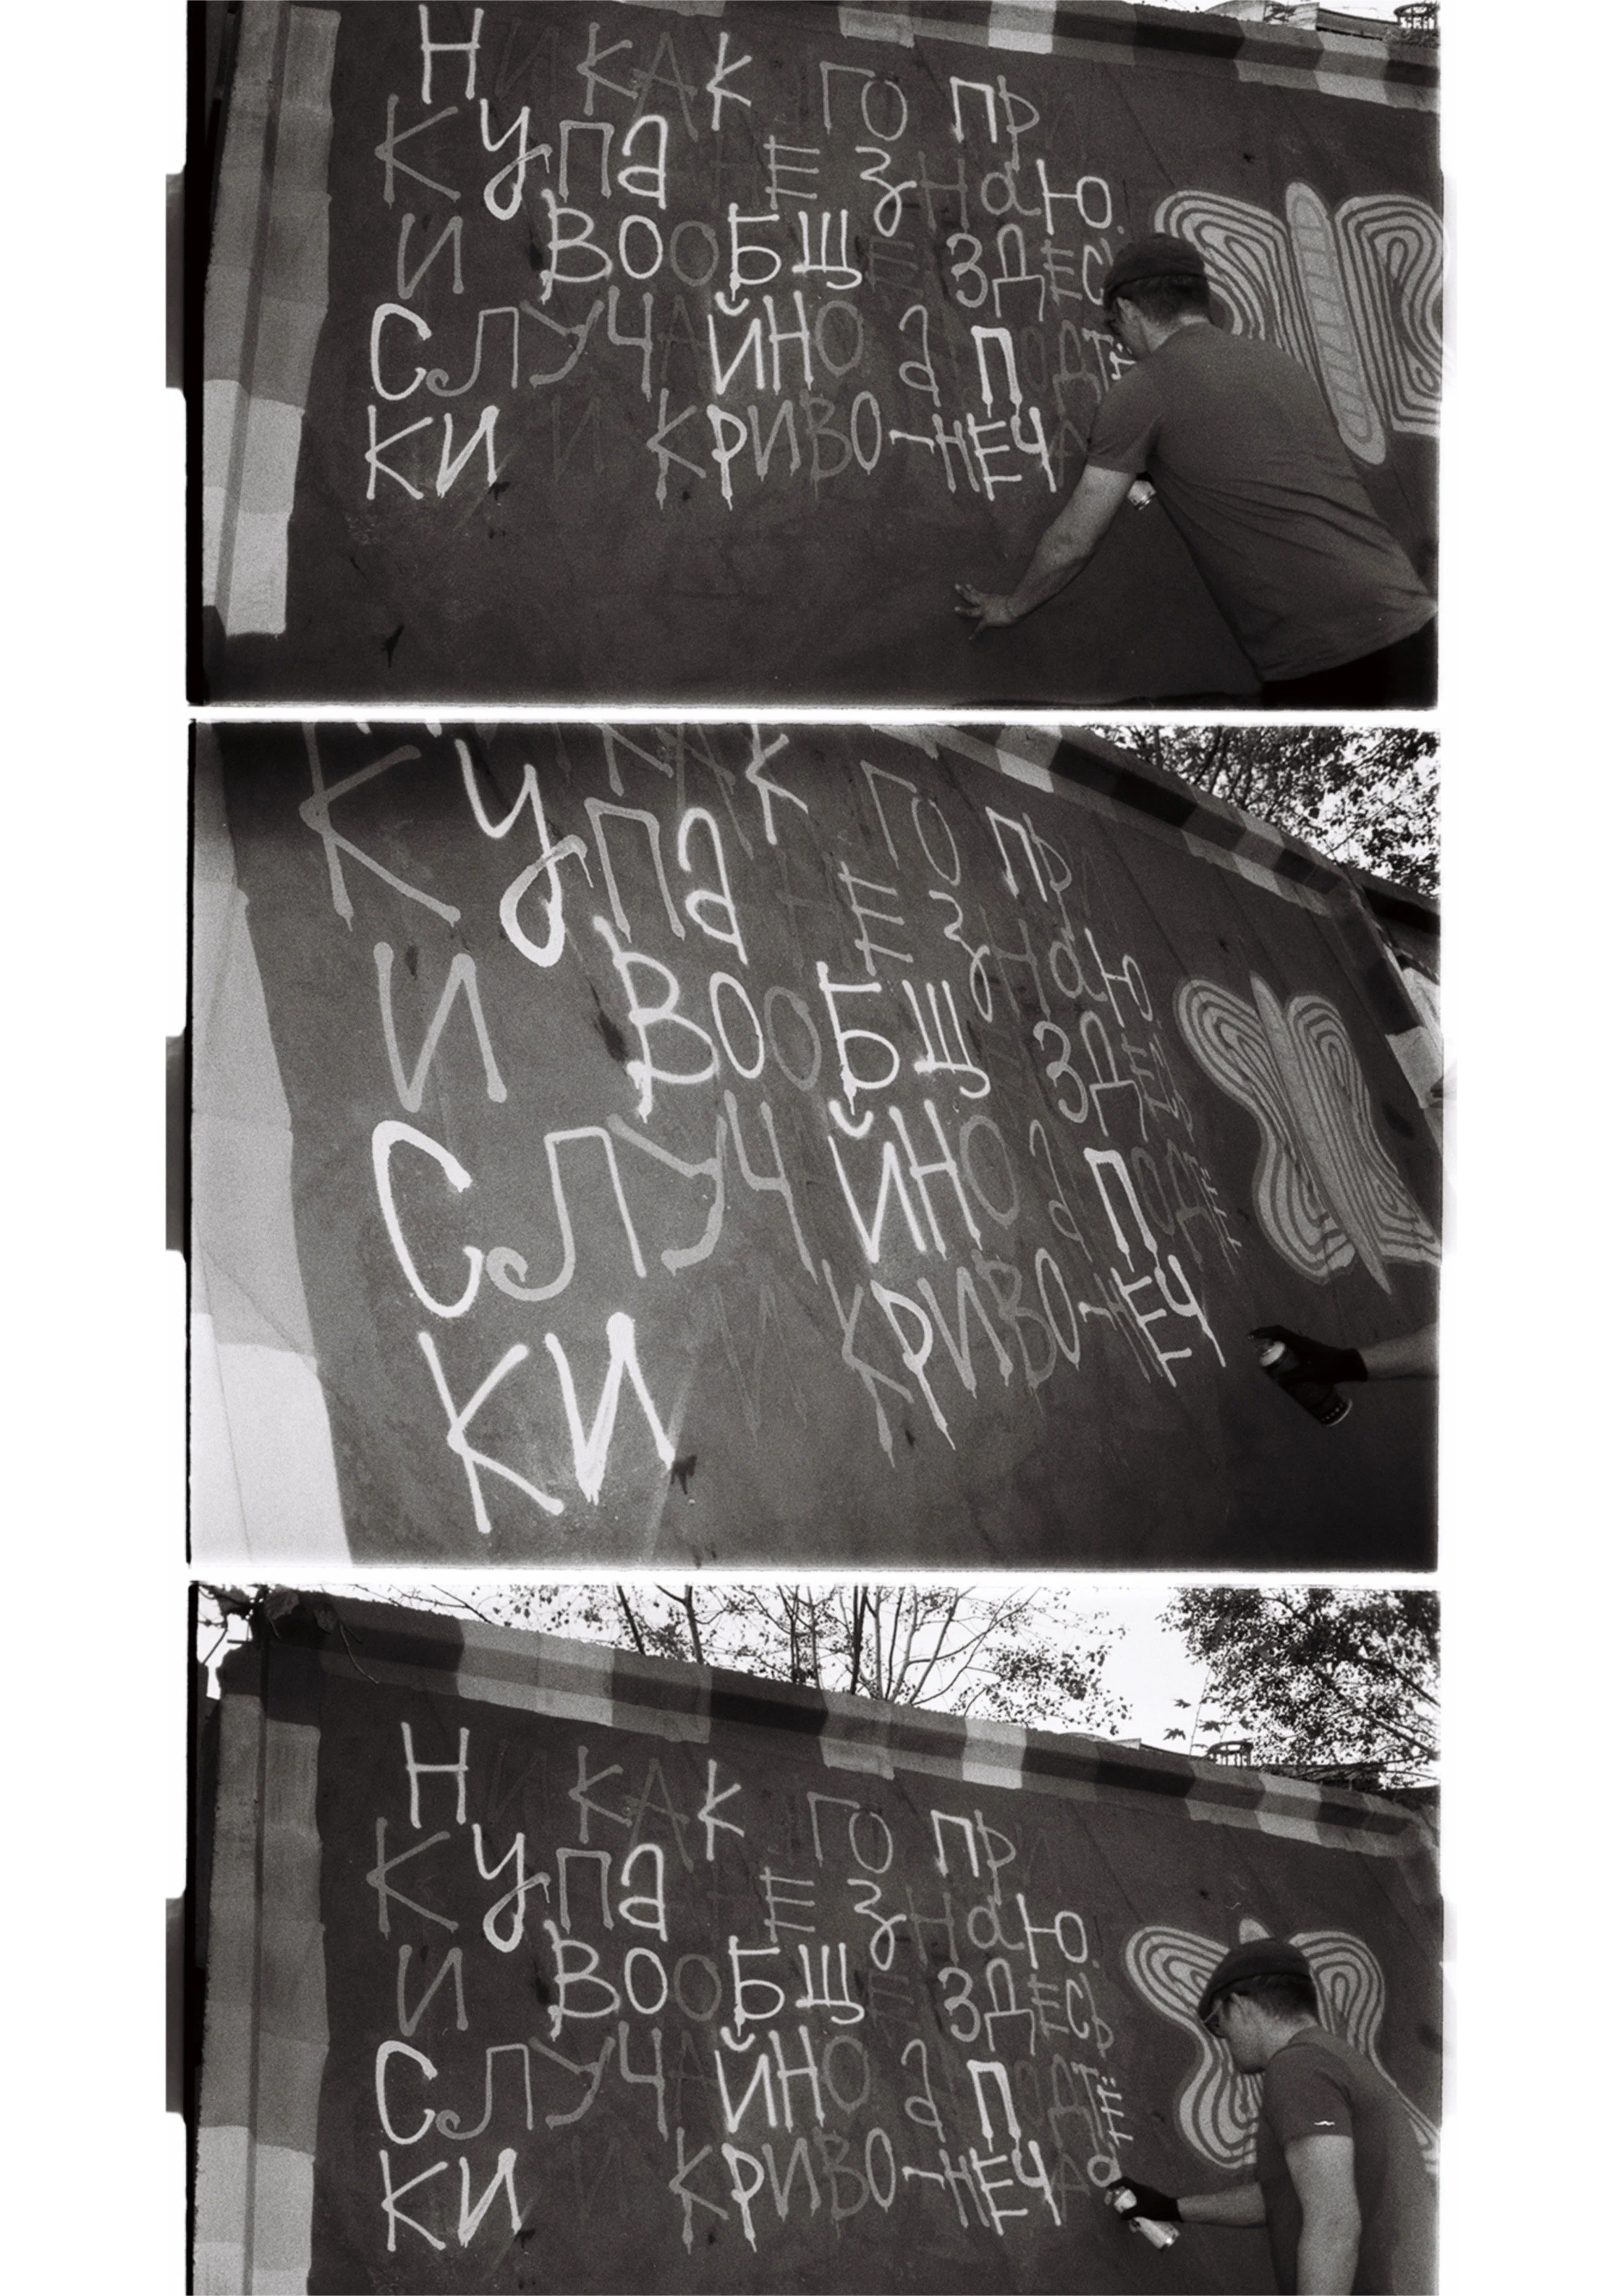 НИКАК ГО ПРИ
КУПа НЕ ЗНаЮ.
И ВООБЩЕ ЗДЕС
СЛУЧАЙНО а ПОДТЕ
КИ И КРИВО-НЕЧА
КАК ГО ПРИ
КУПа НЕ ЗНаЮ.
И ВООБЩЕ ЗДЕСЬ
СЛУЧАЙНО а ПОДТЕ
КИ И КРИВО-НЕЧ
НИКАК ГО ПРИ
КУПа НЕ ЗНаЮ.
И ВООБЩЕ ЗДЕСЬ
СЛУЧАЙНО а ПОДТЕ
КИ И КРИВО-НЕЧА